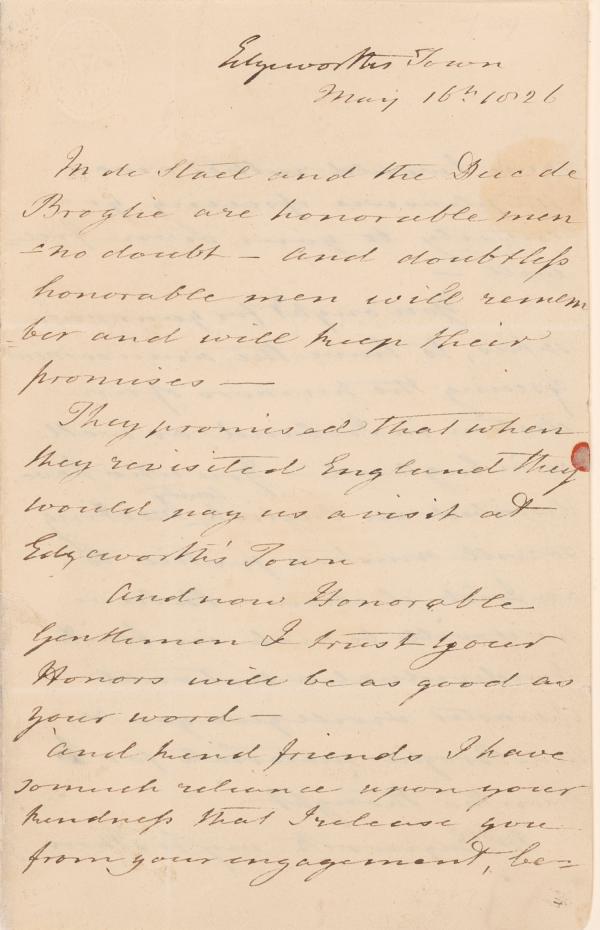 Edgeworth's Town
May 16th 1826
M de Stael and the Duc de
Broglie are honorable men
- no doubt - and doubtless
honorable men will remem
-ber and will keep their
promises -
They promised that when
they revisited England they
would pay us a visit at
Edgeworth's Town
And now Honorable
Gentlemen I trust your
Honors will be as good as
your word -
And kind friends I have
so much reliance upon your
kindness that I release you
from your engagement, be=